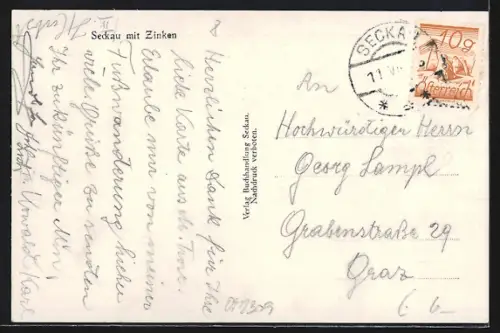 Seckau mit Zinken
8
Herzlichen Dank für Ihre
liebe Karte aus
Erlaube mir von meiner
Fußwanderung hieher
viele Grüße zu senden
Ihr zukünftiger
Urwalek Karl
Verlag Buchhandlung Seckau.
Nachdruck verboten.
SECKAU
11. VI
10g
Österreich
An
Hochwürdigen Herrn
Georg Lampl
Grabenstraße 29
Graz